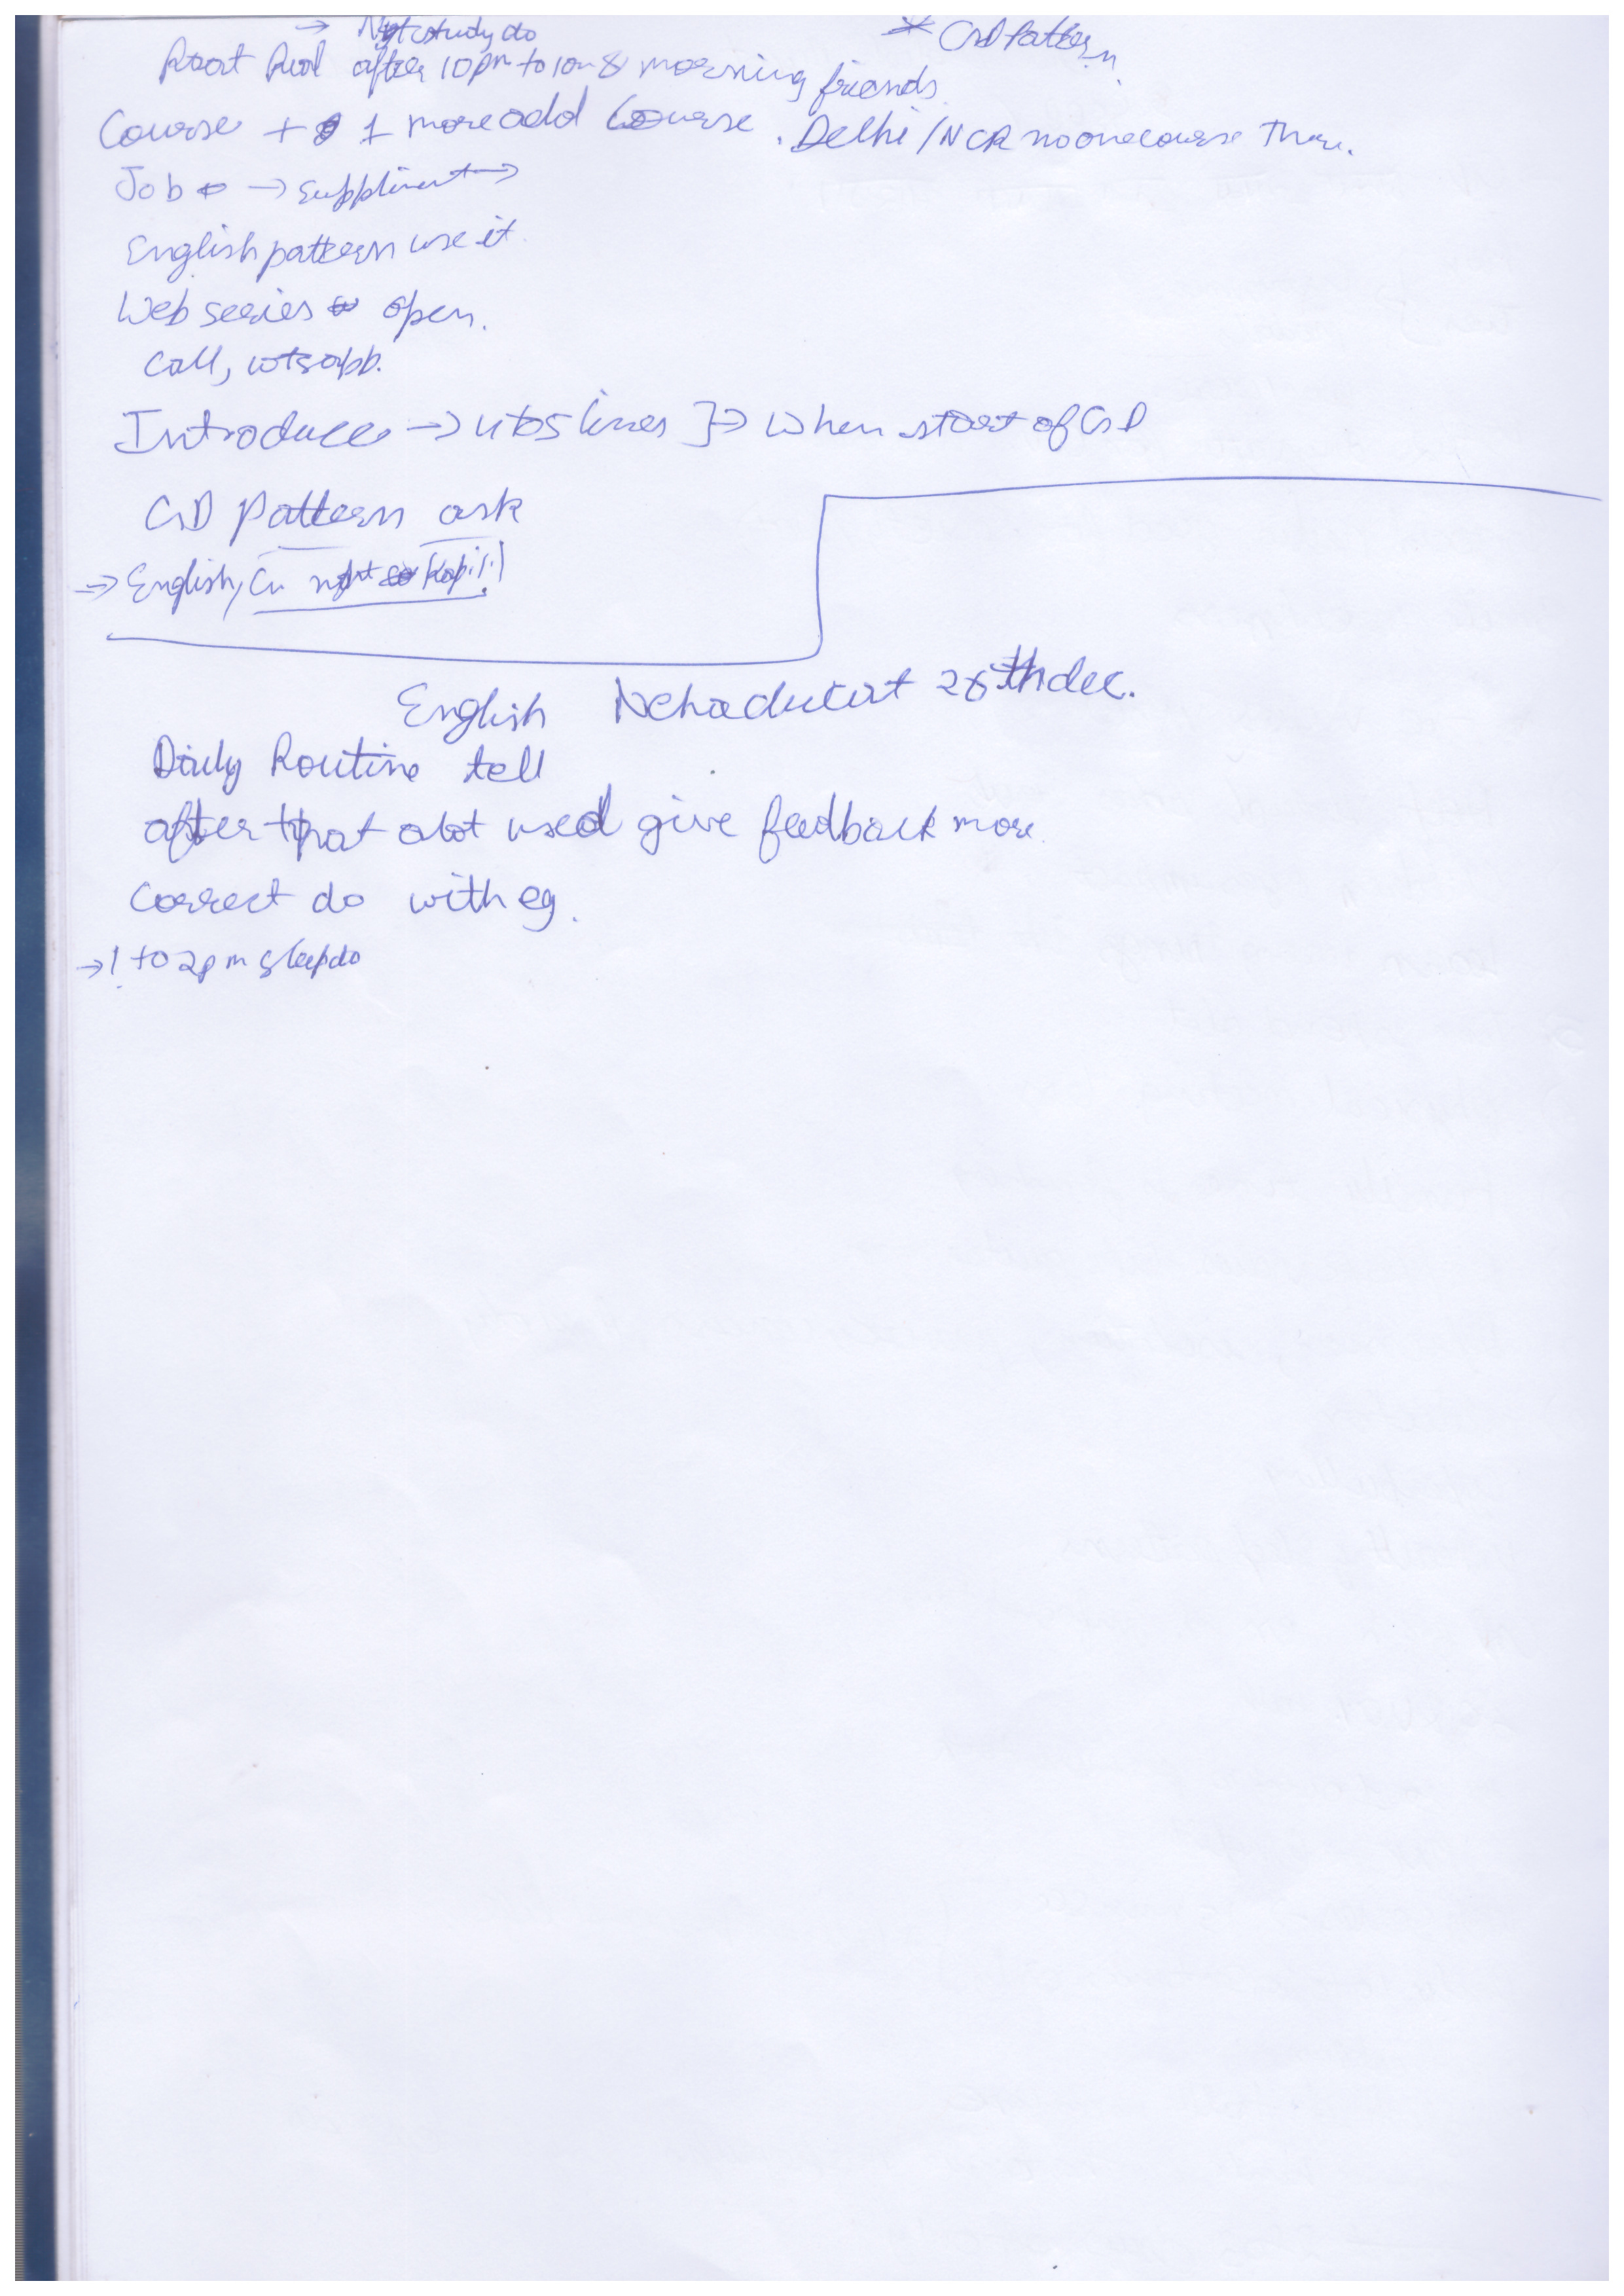 → Not study do
* GD Pattern.
after 10pm to 10 & morning friends
Course + 1 more add Course. Delhi/NCR no one course There.
Job → Suppliment →
English pattern use it.
Web series open.
Call, wtsapp.
Introduce → 4 to 5 lines ]→ When start of GD
GD pattern ask
→ English, Cu not
English 28th dec.
Daily Routine tell
after that alot used give feedback more.
Correct do with eg.
→ 1 to 2pm sleep do